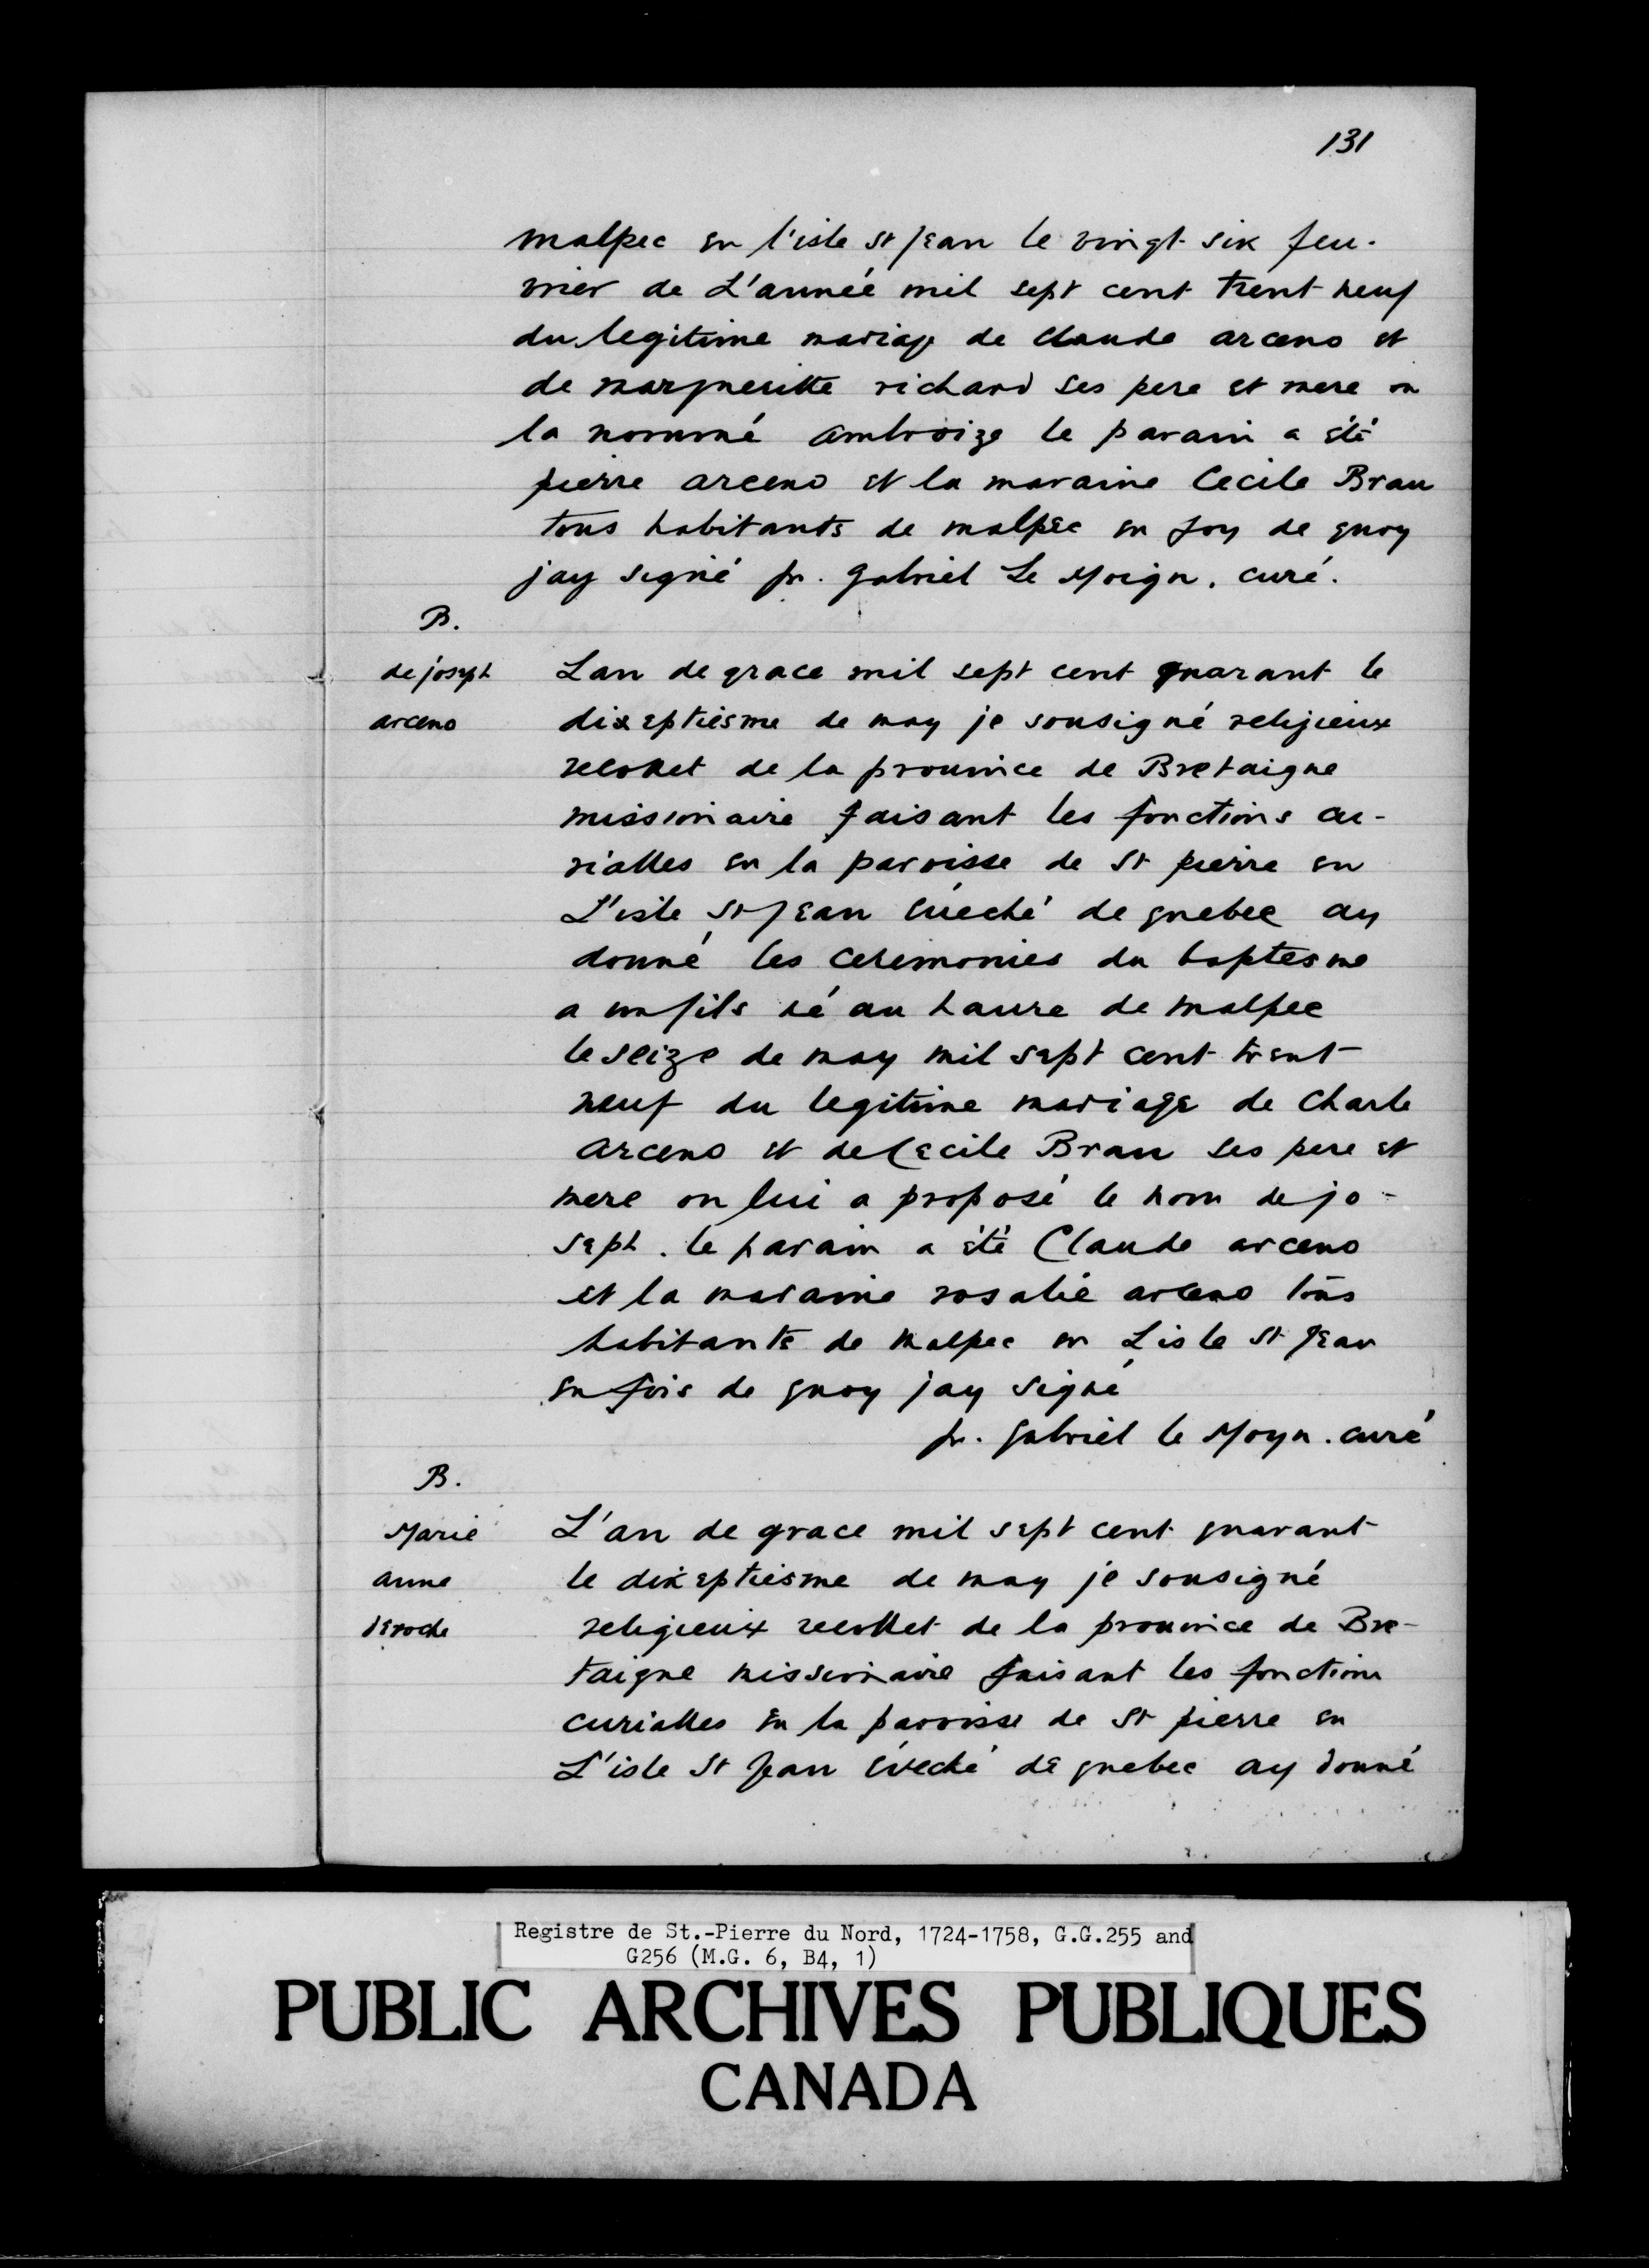 131
malpec en l'isle st jean le vingt six feu-
vrier de L'année mil sept cent trent neuf
du legitime mariage de Claude arceno et
de margueritte richard ses pere et mere on
la nommé ambroize le parain a été
pierre arceno et la maraine Cecile Brau
tous habitants de malpec en foy de quoy
jay signé fr. gabriel Le Moign. curé.
B.
de joseph
arceno
Lan de grace mil sept cent quarant le
dixseptiesme de may je sousigné religieux
recollet de la prouince de Bretaigne
missionaire faisant les fonctions cu-
rialles en la paroisse de st pierre en
L'isle st jean euéché de quebec ay
donné les ceremonies du baptesme
a un fils né au haure de malpec
le seize de may mil sept cent trent
neuf du legitime mariage de Charle
arceno et de Cecile Brau ses pere et
mere on lui a proposé le nom de jo-
seph. le parain a été Claude arceno
et la maraine rosalie arceno tous
habitants de malpec en Lisle st jean
en fois de quoy jay signé
fr. gabriel le Moyn. curé
B.
Marie
anne
deroche
L'an de grace mil sept cent quarant
le dixseptiesme de may je sousigné
religieux recollet de la prouince de Bre-
taigne missionaire faisant les fonctions
curialles en la paroisse de st pierre en
L'isle st jean évéché de quebec ay donné
Registre de St.-Pierre du Nord, 1724-1758, G.G.255 and
G256 (M.G. 6, B4, 1)
PUBLIC ARCHIVES PUBLIQUES
CANADA